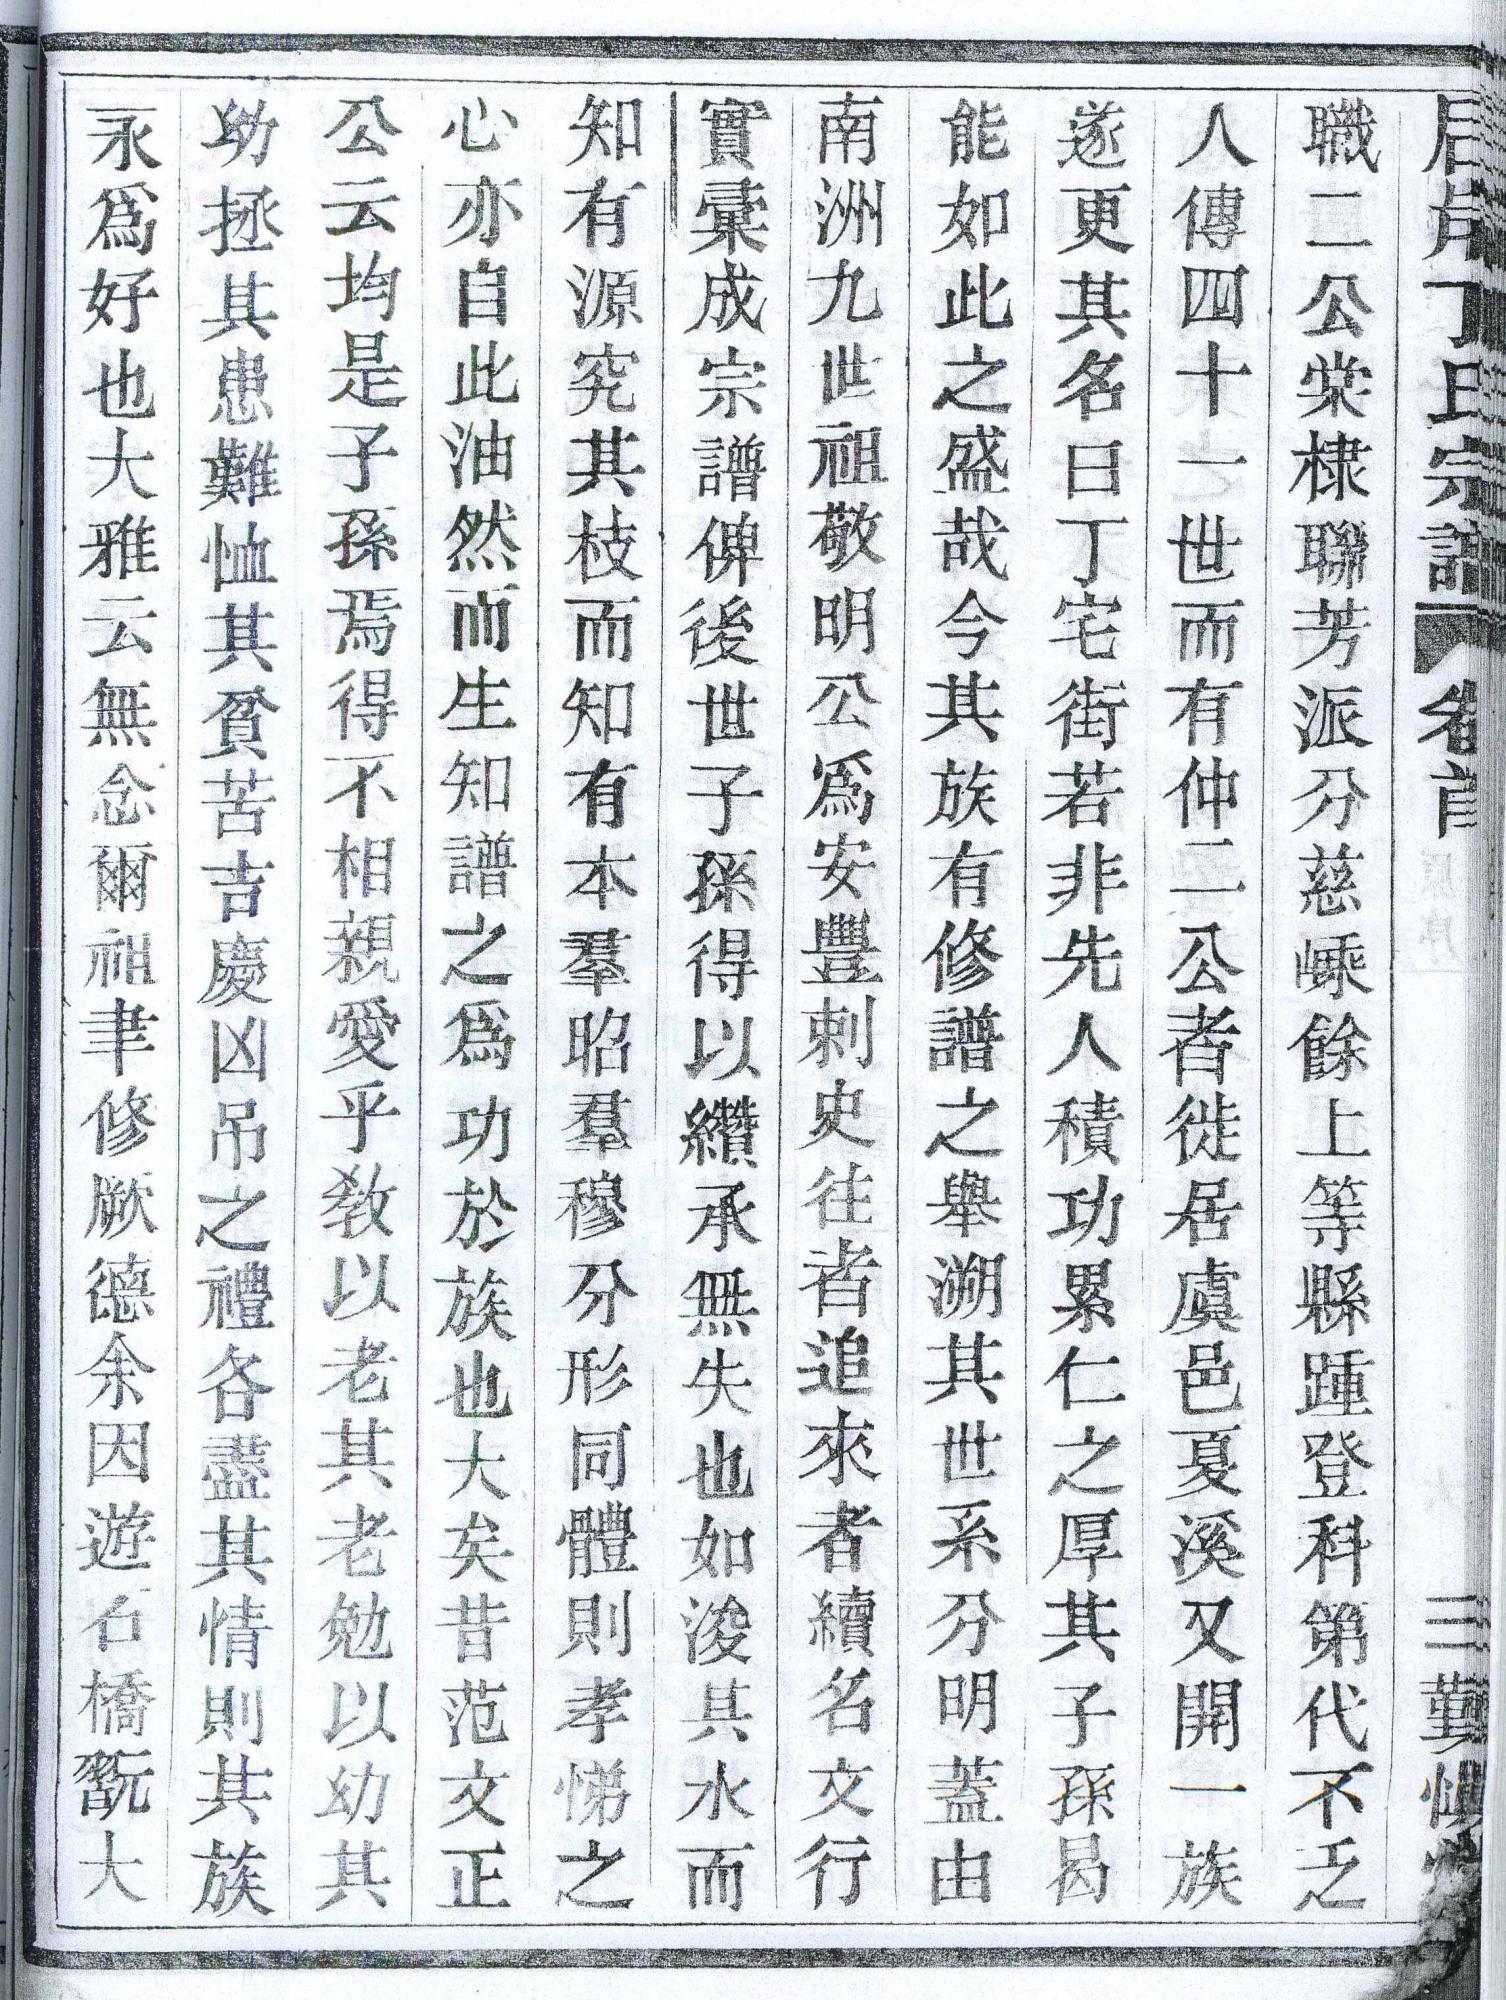 丁氏宗譜 卷首 三 勤慎
職二公棠棣聯芳派分慈嵊餘上等縣踵登科第代不乏
人傳四十一世而有仲二公者徙居虞邑夏溪又開一族
遂更其名曰丁宅街若非先人積功累仁之厚其子孫曷
能如此之盛哉今其族有修譜之舉溯其世系分明蓋由
南洲九世祖敬明公爲安豐刺史往者追來者續名文行
實彙成宗譜俾後世子孫得以纘承無失也如浚其水而
知有源究其枝而知有本羣昭羣穆分形同體則孝悌之
心亦自此油然而生知譜之爲功於族也大矣昔范文正
公云均是子孫焉得不相親愛乎敎以老其老勉以幼其
幼拯其患難恤其貧苦吉慶凶吊之禮各盡其情則其族
永爲好也大雅云無念爾祖聿修厥德余因遊石橋翫大